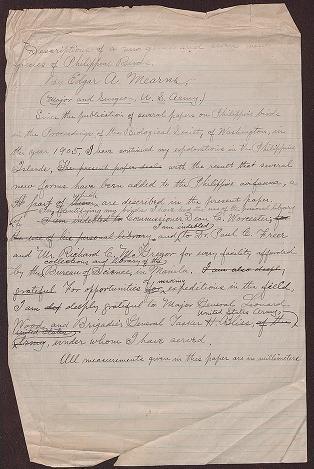 Descriptions of a new genus and eleven new
species of Philippine Birds.
By Edgar A. Mearns,
(Major and Surgeon, U. S. Army.)
Since the publication of several papers on Philippine birds
in the Proceedings of the Biological Society of Washington, in
the year 1905, I have continued my explorations in the Philippine
Islands, The present paper deals with the result that several
new forms have been added to the Philippine avifauna, a
part of which are described in the present paper.
I am indebted to Commissioner Dean C. Worcester for
the use of his personal library, and to Dr. Paul C. Freer
I am indebted
and Mr. Richard C. McGregor for every facility afforded
collections and library of the
by the Bureau of Science, in Manila. I am also deeply
grateful For opportunities for making expeditions in the field,
I am deeply grateful to Major General Leonard
United States Army,
Wood and Brigadier General Tasker H. Bliss, of the
United States
Army, under whom I have served.
All measurements given in this paper are in millimeters